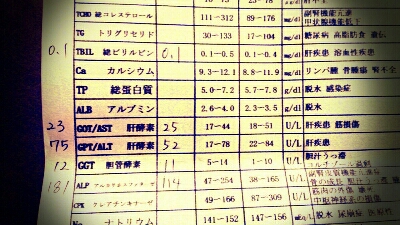 副腎機能亢進
TCHO 総コレステロール 111-312 89-176 mg/dl 甲状腺機能低下
TG トリグリセリド 30-133 17-104 mg/dl 糖尿病 高脂肪食 遺伝
0.1 TBIL 総ビリルビン 0.1 0.1-0.5 0.1-0.4 mg/dl 肝疾患 溶血性疾患
Ca カルシウム 9.3-12.1 8.8-11.9 mg/dl リンパ腫 骨腫瘍 腎不全
TP 総蛋白質 5.0-7.2 5.7-7.8 g/dl 脱水 感染症
ALB アルブミン 2.6-4.0 2.3-3.5 g/dl 脱水
23 GOT/AST 肝酵素 25 17-44 18-51 U/L 肝疾患 筋損傷
75 GPT/ALT 肝酵素 52 17-78 22-84 U/L 肝疾患
12 GGT 胆管酵素 11 5-14 1-10 U/L 胆汁うっ滞
181 ALP アルカリホスファターゼ 114 47-254 38-165 U/L
CPK クレアチンキナーゼ 49-166 87-309 U/L
ナトリウム 141-152 147-156 脱水 尿崩症